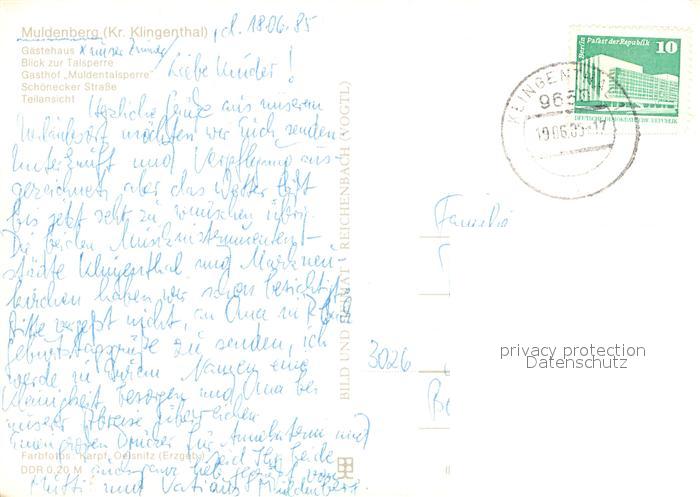 Muldenberg (Kr. Klingenthal), d. 18.06.85
Gästehaus x unser Zimmer
Blick zur Talsperre
Gasthof „Muldentalsperre"
Schönecker Straße
Teilansicht
Liebe Kinder!
Herzliche Grüße aus unserem
Urlaubsort möchten wir Euch senden
Unterkunft und Verpflegung aus-
gezeichnet, aber das Wetter läßt
bis jetzt sehr zu wünschen übrig.
Die beiden Musikinstrumenten-
städte Klingenthal und Markneu-
kirchen haben wir schon besichtigt
Bitte vergeßt nicht, an Oma in
Geburtstagsgrüße zu senden, ich
werde in Namen eine
Kleinigkeit besorgen und Oma bei
unserer Abreise überreichen
Einen großen Drücker für und
seid Ihr beide
auch ganz lieb von
Mutti und Vati aus Muldenberg.
Farbfotos: Karpf, Oelsnitz (Erzgeb.)
DDR 0,20 M
BILD UND HEIMAT REICHENBACH (VOGTL)
Berlin Palast der Republik
10
DEUTSCHE DEMOKRATISCHE REPUBLIK
KLINGENTHAL
965
19.06.85-17
Familie
3026
privacy protection
Datenschutz